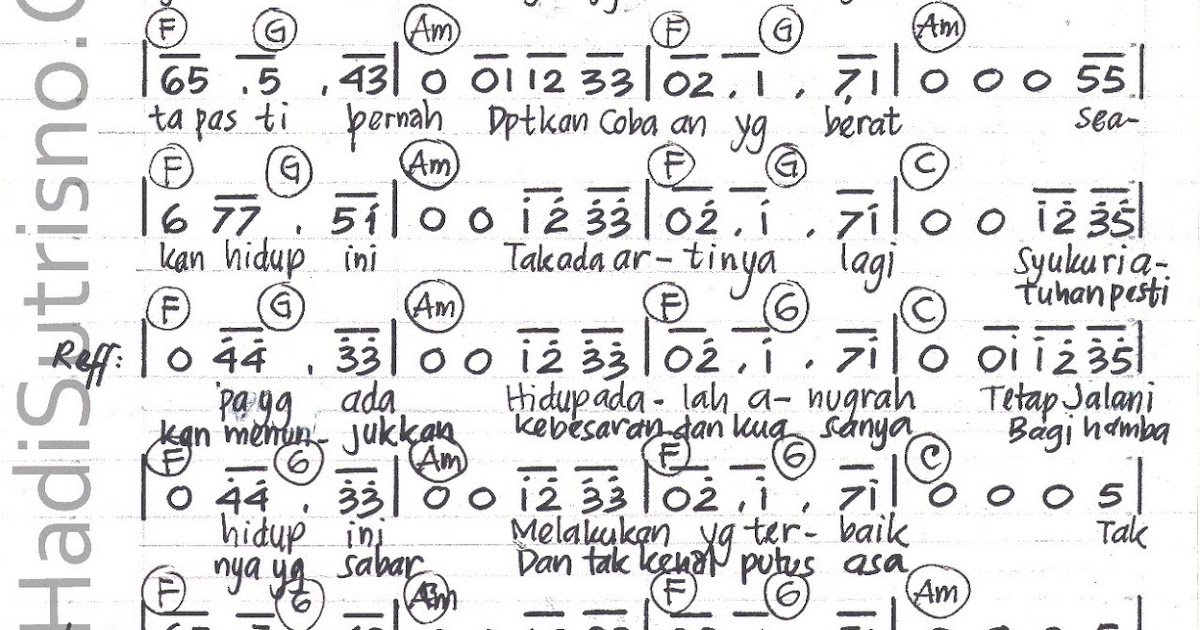 F G Am F G Am
| 65 .5 . 43 | 0 01 12 33 | 02 . 1 . 71 | 0 0 0 55 |
ta pas ti pernah Dptkan Coba an yg berat sea-
F G Am F G C
| 6 77 . 51 | 0 0 12 33 | 02 . 1 . 71 | 0 0 12 35 |
kan hidup ini Takada ar-tinya lagi Syukuri a-
Tuhan pasti
F G Am F G C
Reff: | 0 44 . 33 | 0 0 12 33 | 02 . 1 . 71 | 0 01 12 35 |
pa yg ada Hidup ada-lah a-nugrah Tetap Jalani
kan menun-jukkan kebesaran dan kua sanya Bagi hamba
F G Am F G C
| 0 44 . 33 | 0 0 12 33 | 02 . 1 . 71 | 0 0 0 5 |
hidup ini Melakukan yg ter-baik Tak
nya yg sabar Dan tak kenal putus asa
F G Am F G Am
HadiSutrisno.